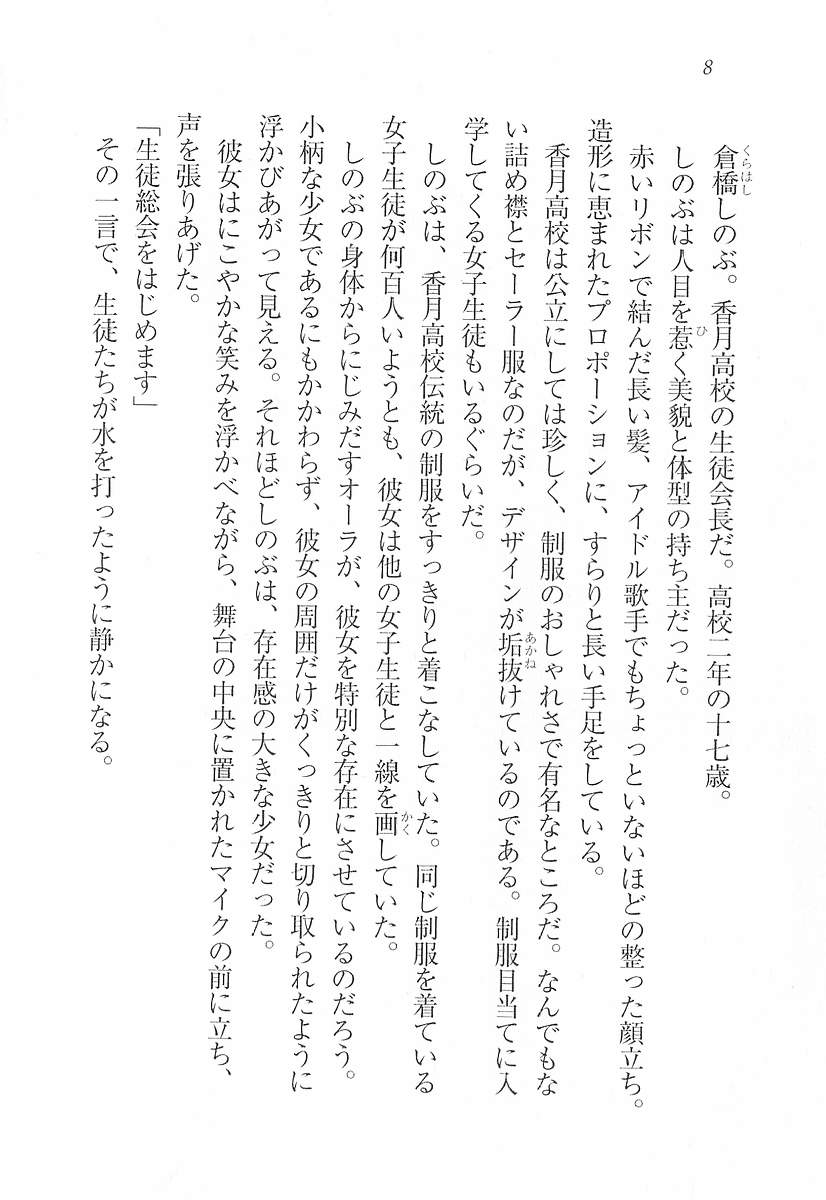 8
倉橋しのぶ。香月高校の生徒会長だ。高校二年の十七歳。
くらはし
しのぶは人目を惹く美貌と体型の持ち主だった。
ひ
赤いリボンで結んだ長い髪、アイドル歌手でもちょっといないほどの整った顔立ち。
造形に恵まれたプロポーションに、すらりと長い手足をしている。
香月高校は公立にしては珍しく、制服のおしゃれさで有名なところだ。なんでもな
い詰め襟とセーラー服なのだが、デザインが垢抜けているのである。制服目当てに入
あかぬ
学してくる女子生徒もいるぐらいだ。
しのぶは、香月高校伝統の制服をすっきりと着こなしていた。同じ制服を着ている
女子生徒が何百人いようとも、彼女は他の女子生徒と一線を画していた。
かく
しのぶの身体からにじみだすオーラが、彼女を特別な存在にさせているのだろう。
小柄な少女であるにもかかわらず、彼女の周囲だけがくっきりと切り取られたように
浮かびあがって見える。それほどしのぶは、存在感の大きな少女だった。
彼女はにこやかな笑みを浮かべながら、舞台の中央に置かれたマイクの前に立ち、
声を張りあげた。
「生徒総会をはじめます」
その一言で、生徒たちが水を打ったように静かになる。